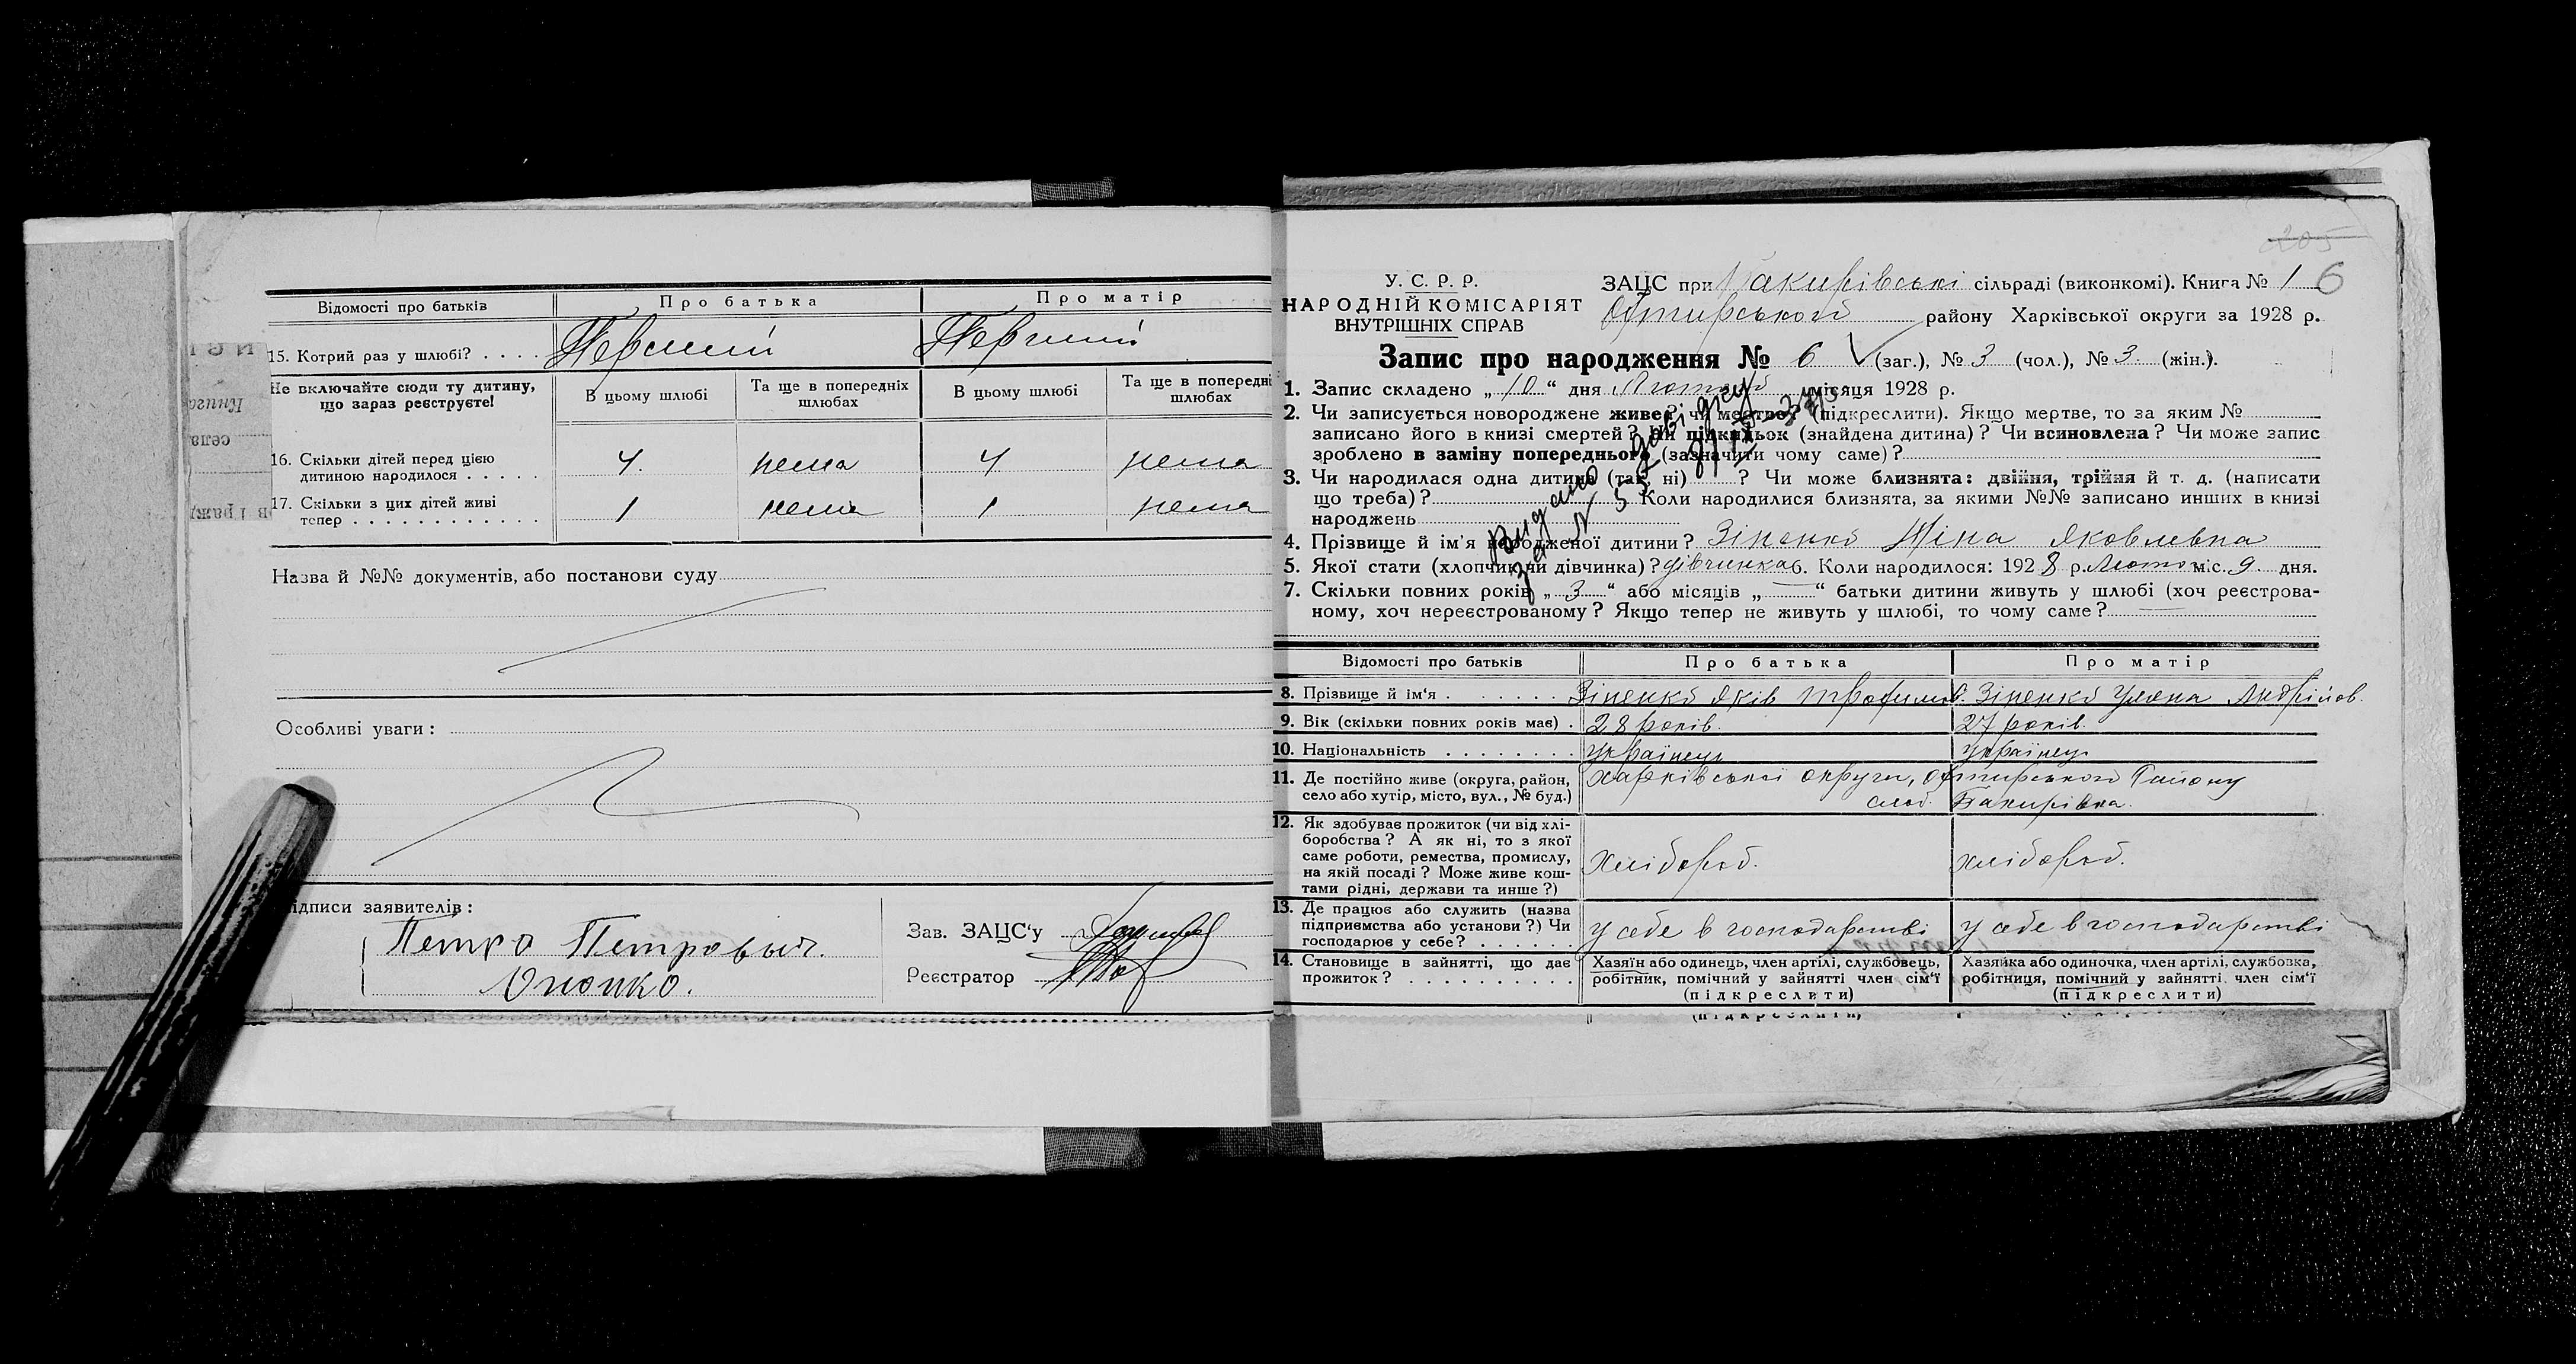 Відомості про батьків Про батька Про матір
15. Котрий раз у шлюбі? . . . . Перший Перший
Не включайте сюди ту дитину, що зараз реєструєте!
В цьому шлюбі Та ще в попередніх шлюбах В цьому шлюбі Та ще в попередні шлюбах
16. Скільки дітей перед цією
дитиною народилося . . . . . 4. нема 4 нема
17. Скільки з цих дітей живі
тепер . . . . . . . . . . . . 1 нема 1 нема
Назва й №№ документів, або постанови суду
Особливі уваги:
ідписи заявителів:
Петро Петровыч.
Зав. ЗАЦС'у
Реєстратор
205
У. С. Р. Р.
НАРОДНІЙ КОМІСАРІЯТ
ВНУТРІШНІХ СПРАВ
ЗАЦС при Бакирівські сільраді (виконкомі). Книга № 1 6
району Харківської округи за 1928 р.
Запис про народження № 6 (заг.), № 3 (чол.), № 3 (жін.).
1. Запис складено „10“ дня Лютого місяця 1928 р.
2. Чи записується новороджене живе? чи мертве? (підкреслити). Якщо мертве, то за яким №
записано його в книзі смертей? Чи підкидьок (знайдена дитина)? Чи всиновлена? Чи може запис
зроблено в заміну попереднього (зазначити чому саме)?
3. Чи народилася одна дитина (так, ні) ? Чи може близнята: двійня, трійня й т. д. (написати
що треба)? Коли народилися близнята, за якими №№ записано инших в книзі
народжень
Видано
4. Прізвище й ім'я народженої дитини? Зіненко Ніна Яковлевна
5. Якої стати (хлопчик чи дівчинка)? дівчинка 6. Коли народилося: 1928 р. Лютого міс. 9 дня.
7. Скільки повних років „3“ або місяців „—“ батьки дитини живуть у шлюбі (хоч реєстрова-
ному, хоч нереєстрованому? Якщо тепер не живуть у шлюбі, то чому саме? —
Відомості про батьків Про батька Про матір
8. Прізвище й ім'я . . . . . . . Зіненко Яків Трофимов. Зіненко Уляна Андріїов.
9. Вік (скільки повних років має) . 28 років. 27 років.
10. Національність . . . . . . . . Українець Українець
11. Де постійно живе (округа, район,
село або хутір, місто, вул., № буд.)
Харківської округи, Охтирського Району
слоб. Бакирівка.
12. Як здобуває прожиток (чи від хлі-
боробства? А як ні, то з якої
саме роботи, ремества, промислу,
на якій посаді? Може живе кош-
тами рідні, держави та инше?)
Хлібороб. хлібороб.
13. Де працює або служить (назва
підприємства або установи?) Чи
господарює у себе? . . . . . .
у себе в господарстві у себе в господарстві
14. Становище в зайнятті, що дає
прожиток? . . . . . . . . . .
Хазяїн або одинець, член артілі, службовець,
робітник, помічний у зайнятті член сім'ї
(підкреслити)
Хазяйка або одиночка, член артілі, службовка,
робітниця, помічний у зайнятті член сім'ї
(підкреслити)